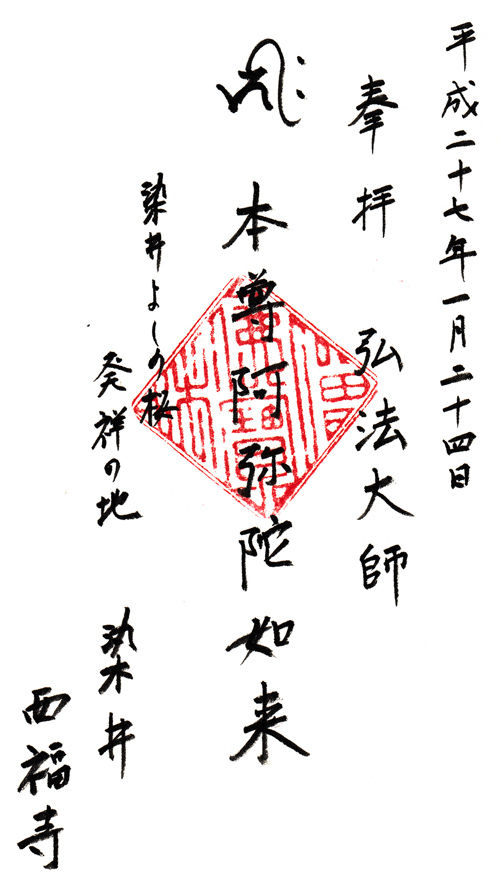 平成二十七年一月二十四日
奉拝 弘法大師
本尊阿弥陀如来
染井よしの桜
発祥の地
染井
西福寺